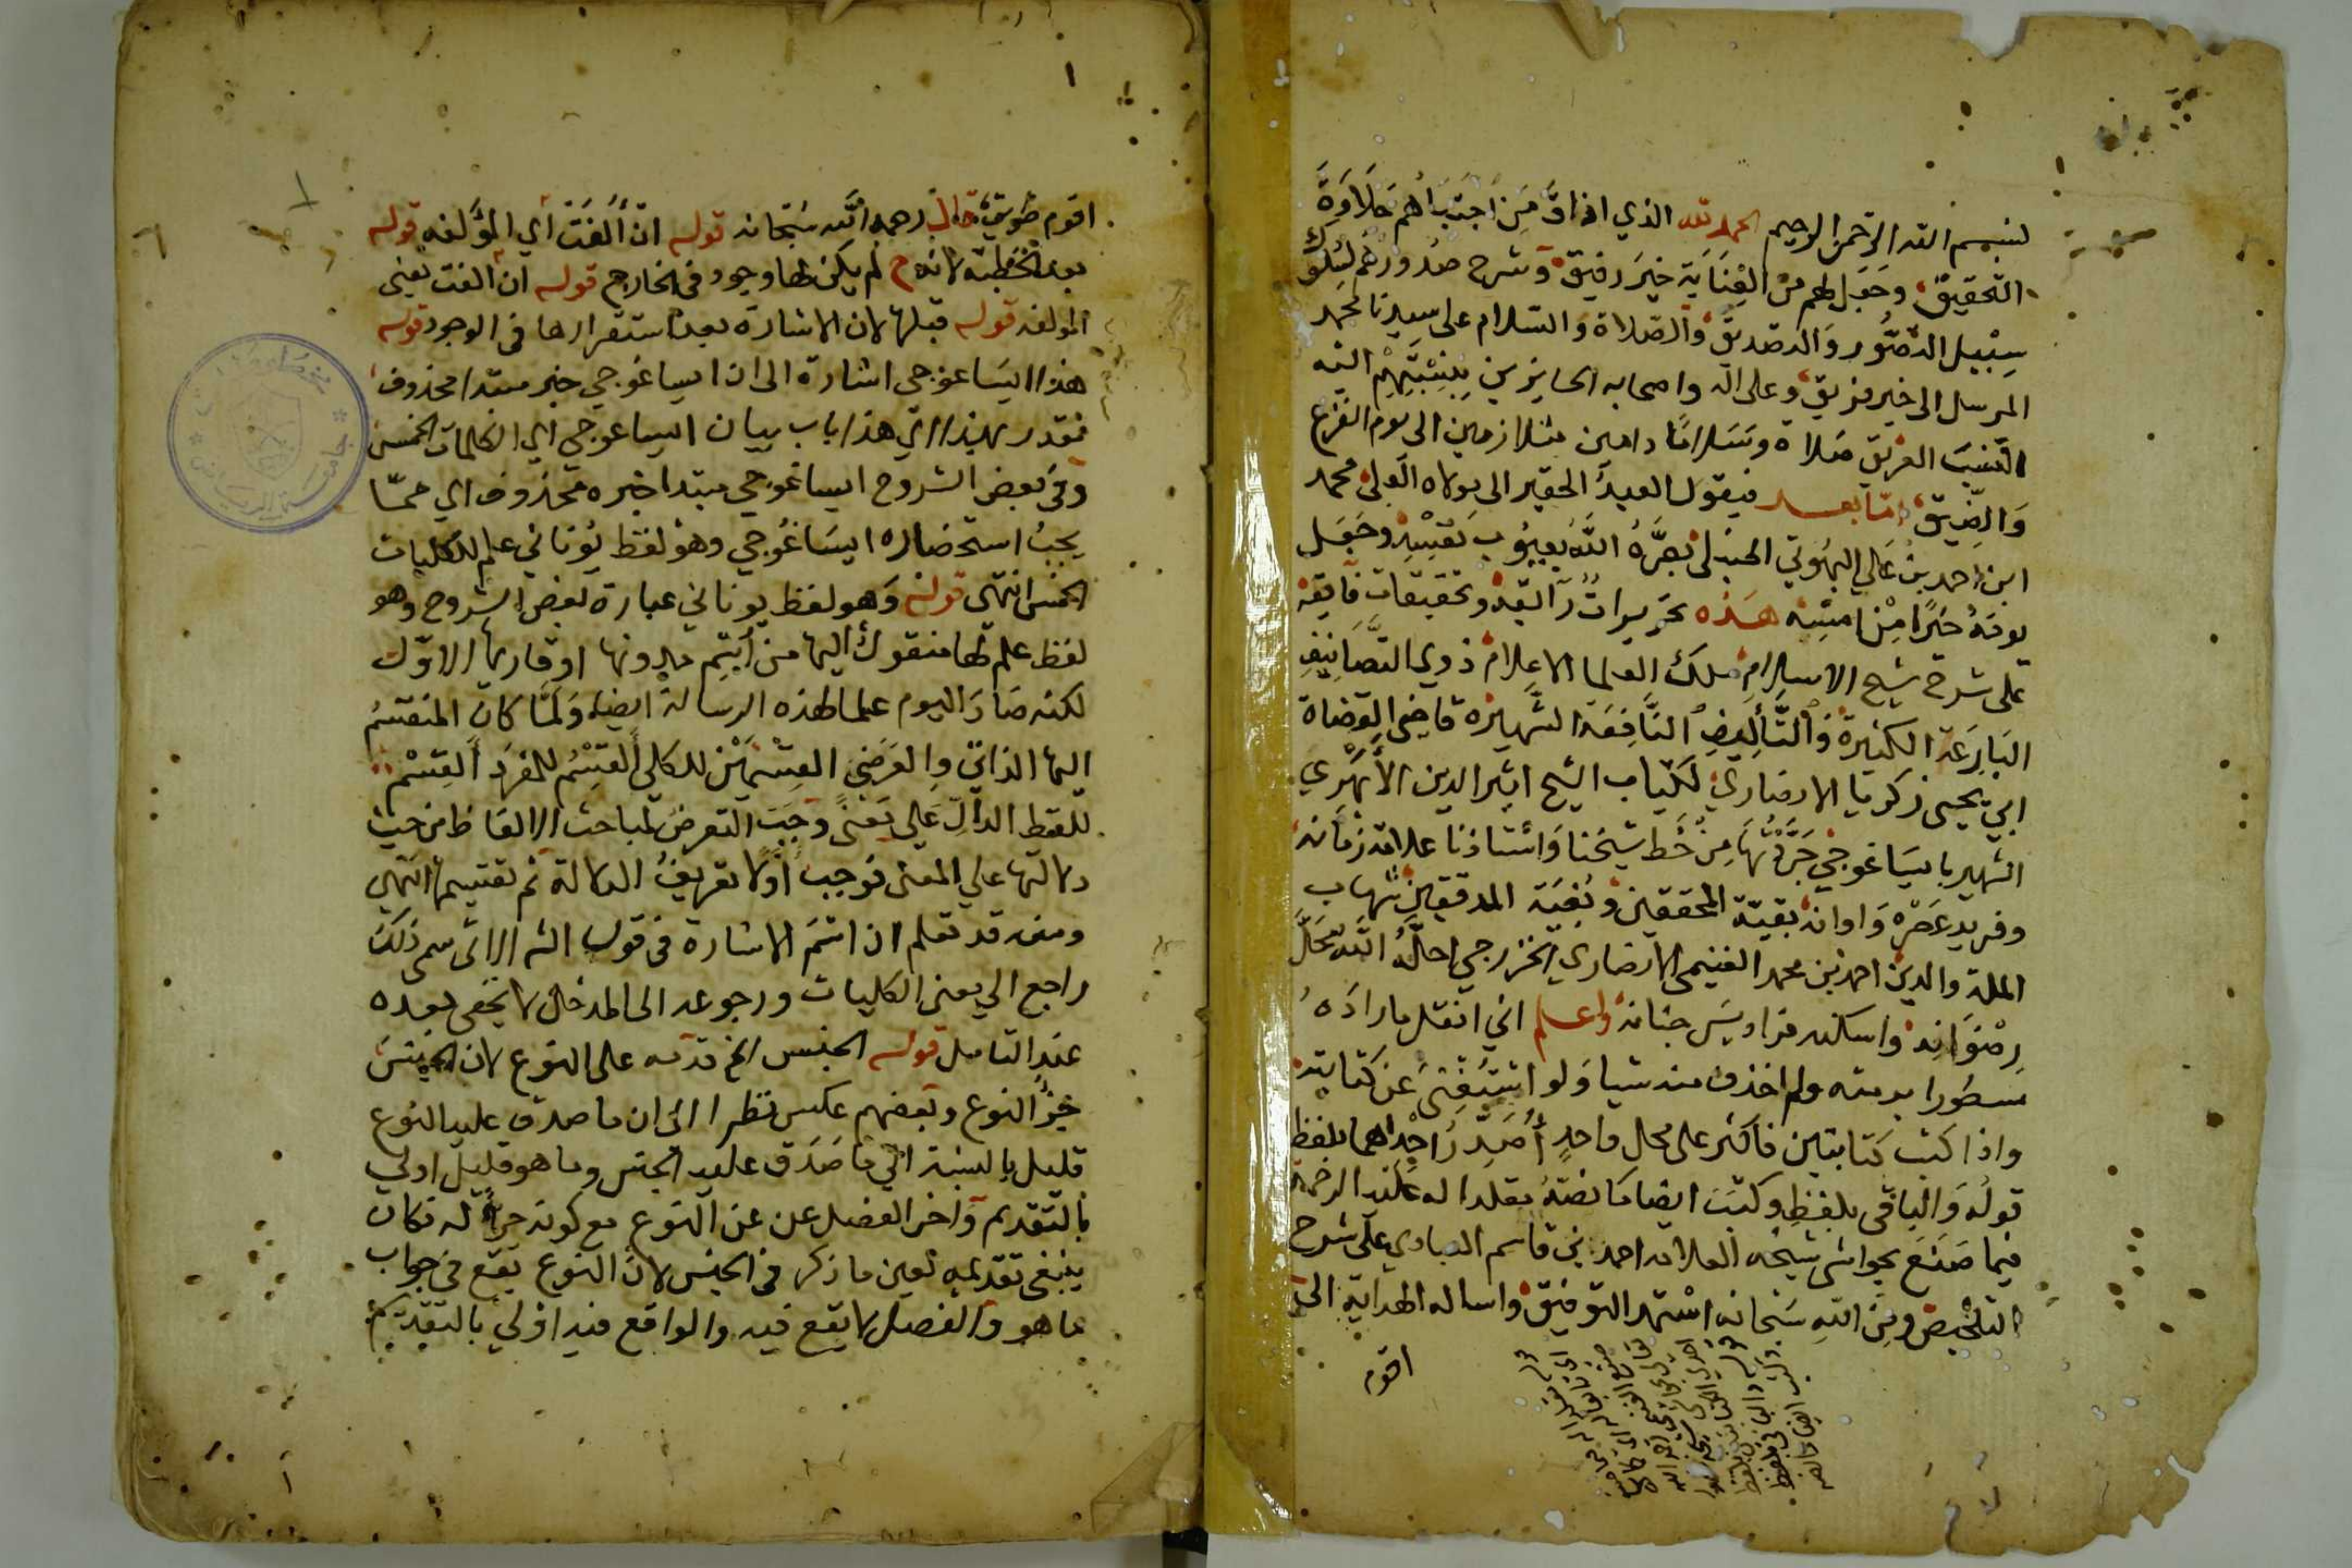 بسم الله الرحمن الرحيم الحمد لله الذي اذاق من اجتباهم حلاوة
التحقيق وجعل لهم من العناية خير رفيق وشرح صدورهم لسلوك
سبيل التصور والتصديق والصلاة والسلام على سيدنا محمد
المرسل الى خير فريق وعلى اله واصحابه الحايزين بنسبتهم اليه
النسب العريق صلاة وسلاما دامين متلازمين الى يوم الفزع
والضيق اما بعد فيقول العبد الحقير الى مولاه العلي محمد
ابن احمد بن علي البهوتي الحنبلي بصره الله بعيوب نفسه وجعل
يومه خيرا من امسه هذه تحريرات رآيقه وتحقيقات فآيقه
على شرح شيخ الاسلام ملك العلما الاعلام ذوي التصانيف
البارعة الكثيرة والتآليف النافعة الشهيرة قاضي القضاة
ابي يحيى زكريا الانصاري لكتاب الشيخ اثير الدين الابهري
الشهير بايساغوجي جردتها من خط شيخنا واستاذنا علامة زمانه
وفريد عصره واوانه بقية المحققين وبغية المدققين شهاب
الملة والدين احمد بن محمد الغنيمي الانصاري الخزرجي احله الله محل
رضوانه واسكنه فراديس جنانه واعلم اني انقل ما راده
مسطورا برمته ولم احذف منه شيا ولو استغني عن كتابته
واذا كتب كتابتين فاكثر على محل واحد أصدر احداهما بلفظ
قوله والباقي بلفظ وكتب ايضا ما نصه مقلدا له عليه الرحمة
فيما صنع بحواشي شيخه العلامه احمد بن قاسم العبادي على شرح
التلخيص ومن الله سبحانه استمد التوفيق واساله الهداية الى
اقوم
اقوم طريق قال رحمه الله سبحانه قوله ان ألفت أي المؤلفه قوله
بعد الخطبة لانه ح لم يكن لها وجود في الخارج قوله ان الفت يعني
المولفه قوله قبلها لان الاشارة بعد استقرارها في الوجود قوله
هذا ايساغوجي اشارة الى ان ايساغوجي خبر مبتدا محذوف
فقدر بهذا اي هذا باب بيان ايساغوجي اي الكلمات الخمس
وفي بعض الشروح ايساغوجي مبتدا خبره محذوف اي مما
يجب استحضاره ايساغوجي وهو لفظ يوناني علم للكليات
الخمس انتهى قوله وهو لفظ يوناني عبارة بعض الشروح وهو
لفظ علم لها منقول اليها من اسم مدونها او قاريها الاول
لكنه صار اليوم علما لهذه الرسالة ايضا ولما كان المنقسم
اليها الذاتي والعرضي القسمين للكلي القسم للمفرد القسم
للفظ الدال على معنى وجب التعرض لمباحث الالفاظ من حيث
دلالتها على المعنى فوجب أولا تعريف الدلالة ثم تقسيمها انتهى
ومنه قد تعلم ان اسم الاشارة في قول الش الاتي سمى ذلك
راجع الي معنى الكليات ورجوعه الى المدخل لا يخفى بعده
عند التامل قوله الجنس الخ قدمه على النوع لان الجنس
جزؤ النوع وبعضهم عكس نظرا الى ان ما صدق عليه النوع
قليل بالنسبة الى ما صدق عليه الجنس وما هو قليل اولى
بالتقديم وأخر الفصل عن عن النوع مع كونه جزأ له فكان
ينبغي تقديمه لعين ما ذكر في الجنس لان النوع يقع في جواب
ما هو والفصل لا يقع فيه والواقع فيه اولى بالتقديم